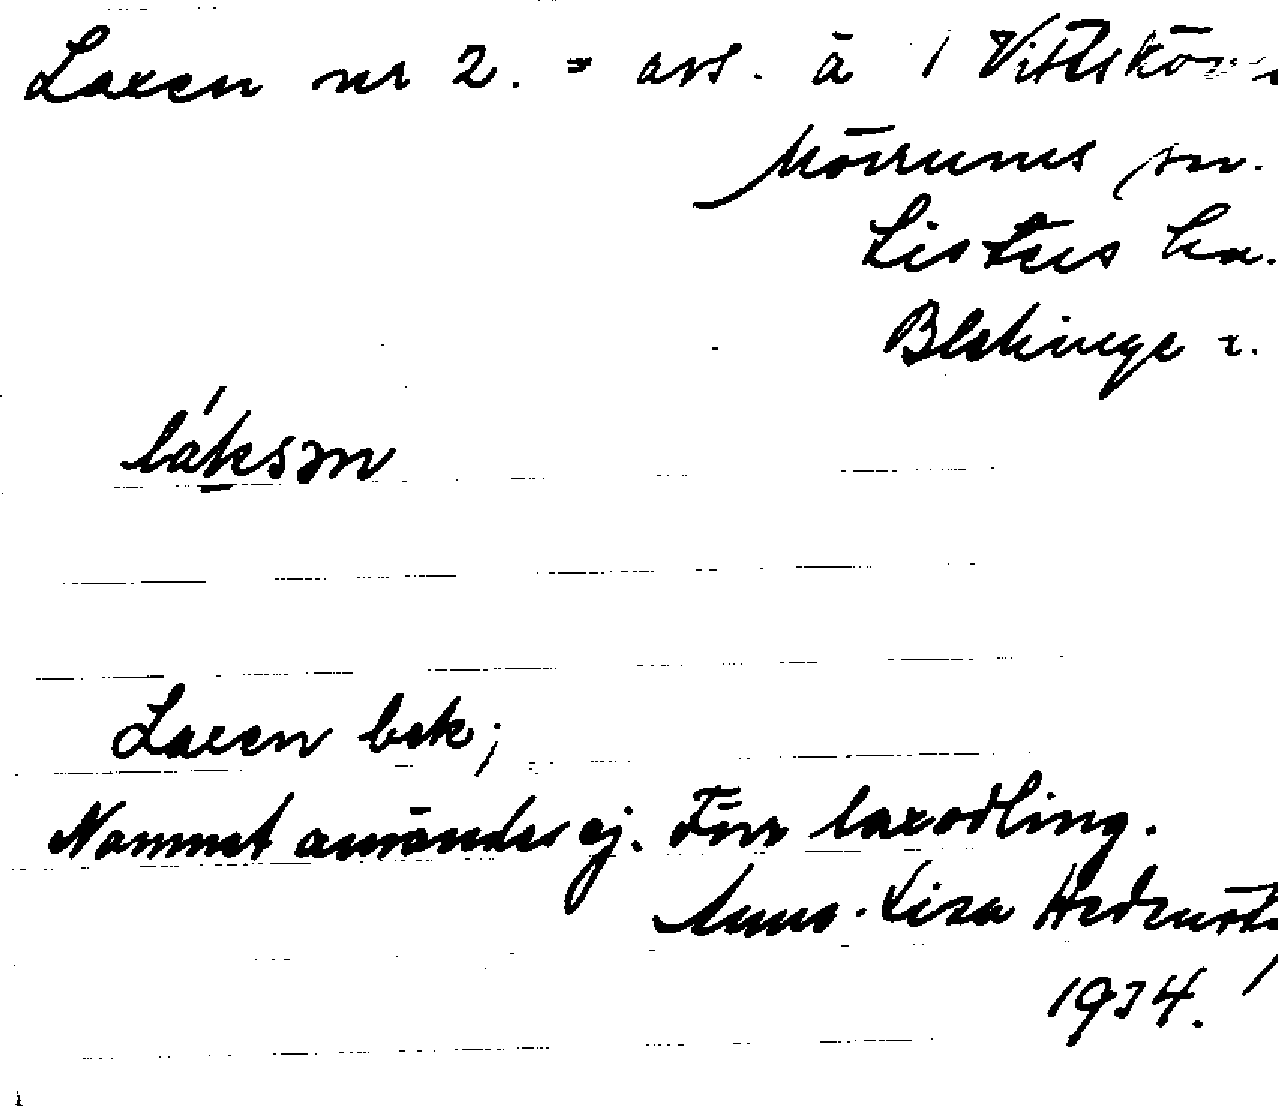 Laxen nr 2. = avs. å 1 Vittskö
Mörrums sn.
Listers hd.
Blekinge l.
láksən
Laxen bek;
Namnet användes ej. Förr laxodling.
Anna-Lisa
1934.